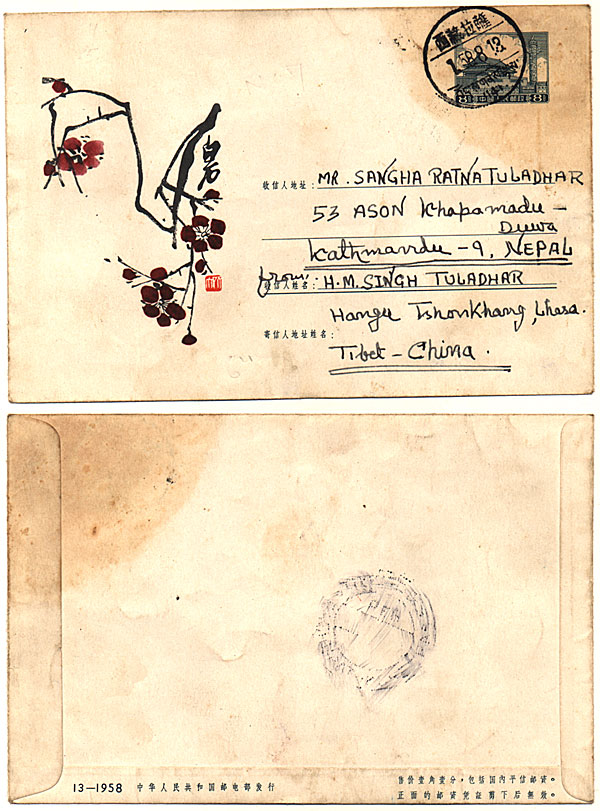 西藏拉薩
1958.8.13
8 中国人民邮政 8
白石
收信人地址:
MR. SANGHA RATNA TULADHAR
53 ASON Khapamadu -
Duwa
Kathmandu - 9, NEPAL
from: H.M. SINGH TULADHAR
收信人姓名:
Hangu Tshonkhang, Lhasa.
寄信人地址姓名:
Tibet - China.
13—1958 中华人民共和国邮电部发行
售价壹角壹分,包括国内平信邮资。
正面的邮资凭证剪下后無效。